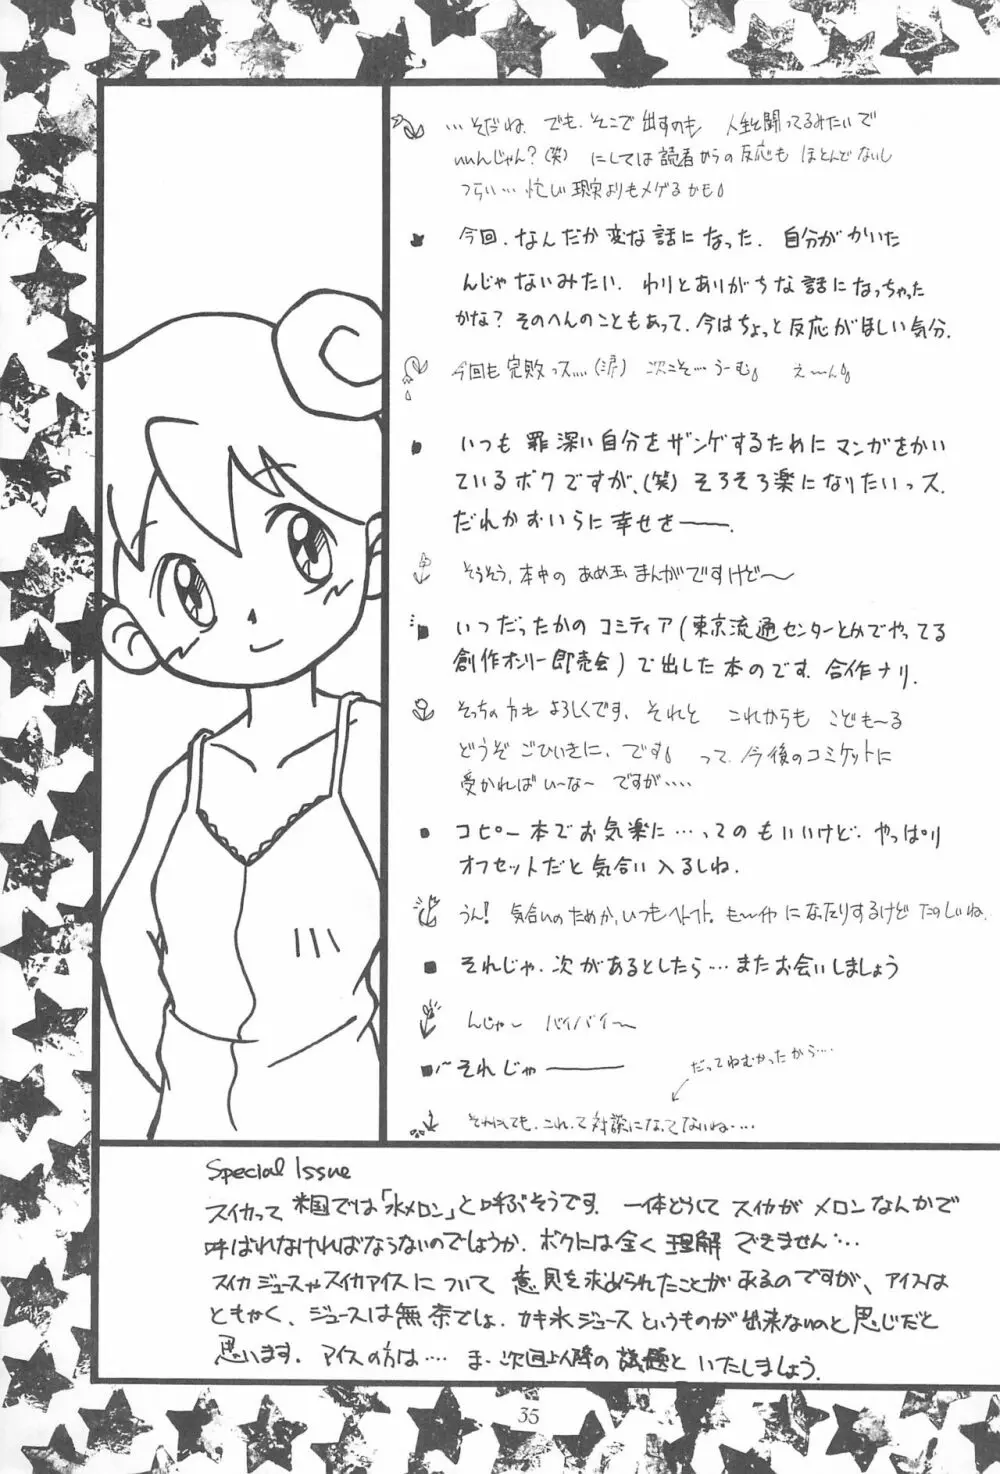 …そだね. でも. そこで出すのも 人生と闘ってるみたいで
いいんじゃん？(笑) にしては読者からの反応も ほとんどないし
つらい… 忙しい現実よりもメゲるかも。
今回. なんだか変な話になった. 自分がかいた
んじゃないみたい. わりとありがちな話になっちゃった
かな？そのへんのこともあって. 今はちょっと反応がほしい気分.
今回も完敗っス….(涙) 次こそ… うーむ。 えーん。
いつも罪深い自分をザンゲするためにマンガをかい
ているボクですが、(笑) そろそろ楽になりたいっス.
だれかおいらに幸せを――.
そうそう. 本中のあめ玉まんがですけど〜
いつだったかのコミティア(東京流通センターとかでやってる
創作オンリー即売会)で出した本のです. 合作ナリ.
そっちの方も よろしくです. それと これからも こども〜る
どうぞ ごひいきに. です。 って. 今後のコミケットに
受かればい〜な〜 ですが….
コピー本でお気楽に…ってのもいいけど. やっぱり
オフセットだと気合い入るしね.
うん! 気合いのためか. いつもヘトヘト. も〜イヤ になったりするけど たのしいね.
それじゃ. 次があるとしたら…またお会いしましょう
んじゃー バイバイ〜
〜それじゃ――
だってねむかったから…
それにしても. これって対談になってないね….
Special Issue
スイカって 米国では「水メロン」と呼ぶそうです. 一体どうして スイカが メロンなんかで
呼ばれなければならないのでしょうか. ボクには全く理解できません….
スイカジュースやスイカアイスについて 意見を求められたことがあるのですが、アイスは
ともかく、ジュースは無茶でしょ. カキ氷ジュースというものが出来ないのと同じだと
思います. アイスの方は…. ま. 次回以降の議題と いたしましょう.
35